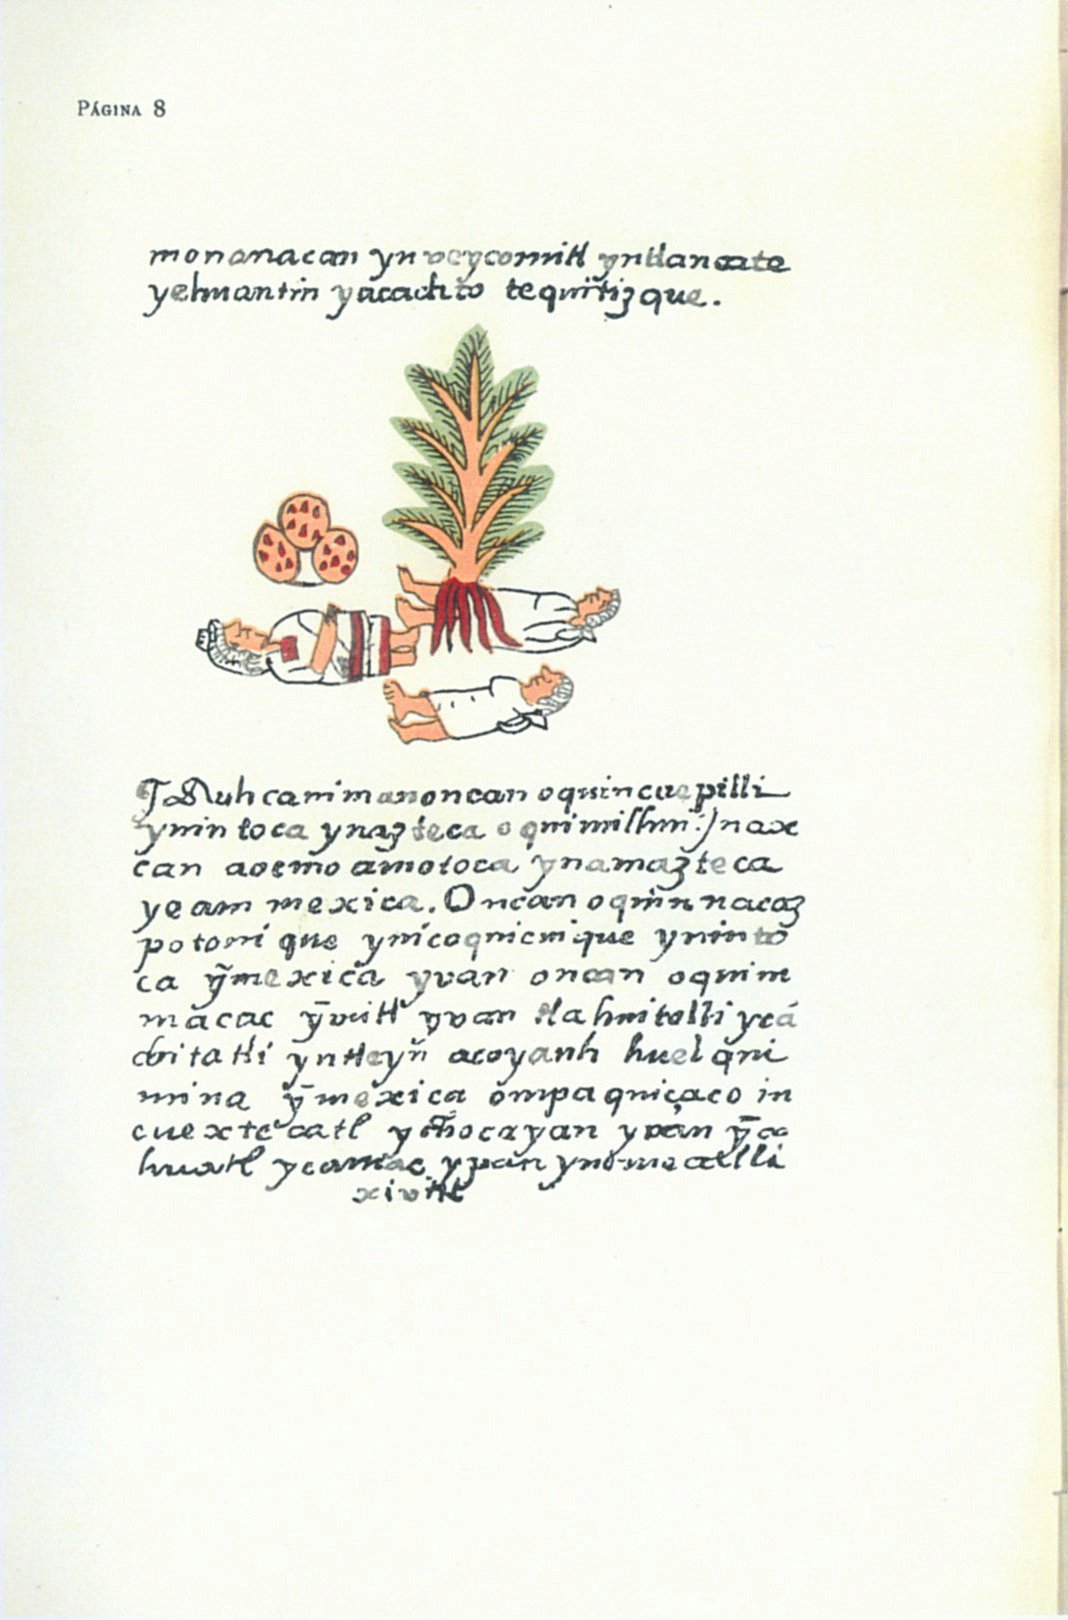 PÁGINA 8
mononacan yn veycomitl yntlan cate
yehuantin yacachto tequitizque.
Auh çanima noncan oquincuepilli
ynintoca ynazteca oquimilhui: Jnax
can aocmo amotoca ynamazteca
ye am mexica. Oncan oquin nacaz
potoni que ynicoquicuique yninto
ca ỹmexica yvan oncan oquim
macac ỹmitl yvan tlahuitolli ycá
chitatli yntleyn acoyauh huel qui
mina ỹmexica ompa quiçaco in
cuextecatl ychocayan ypan ỹca
huatl ycamac ypan ynomeactli
xivitl